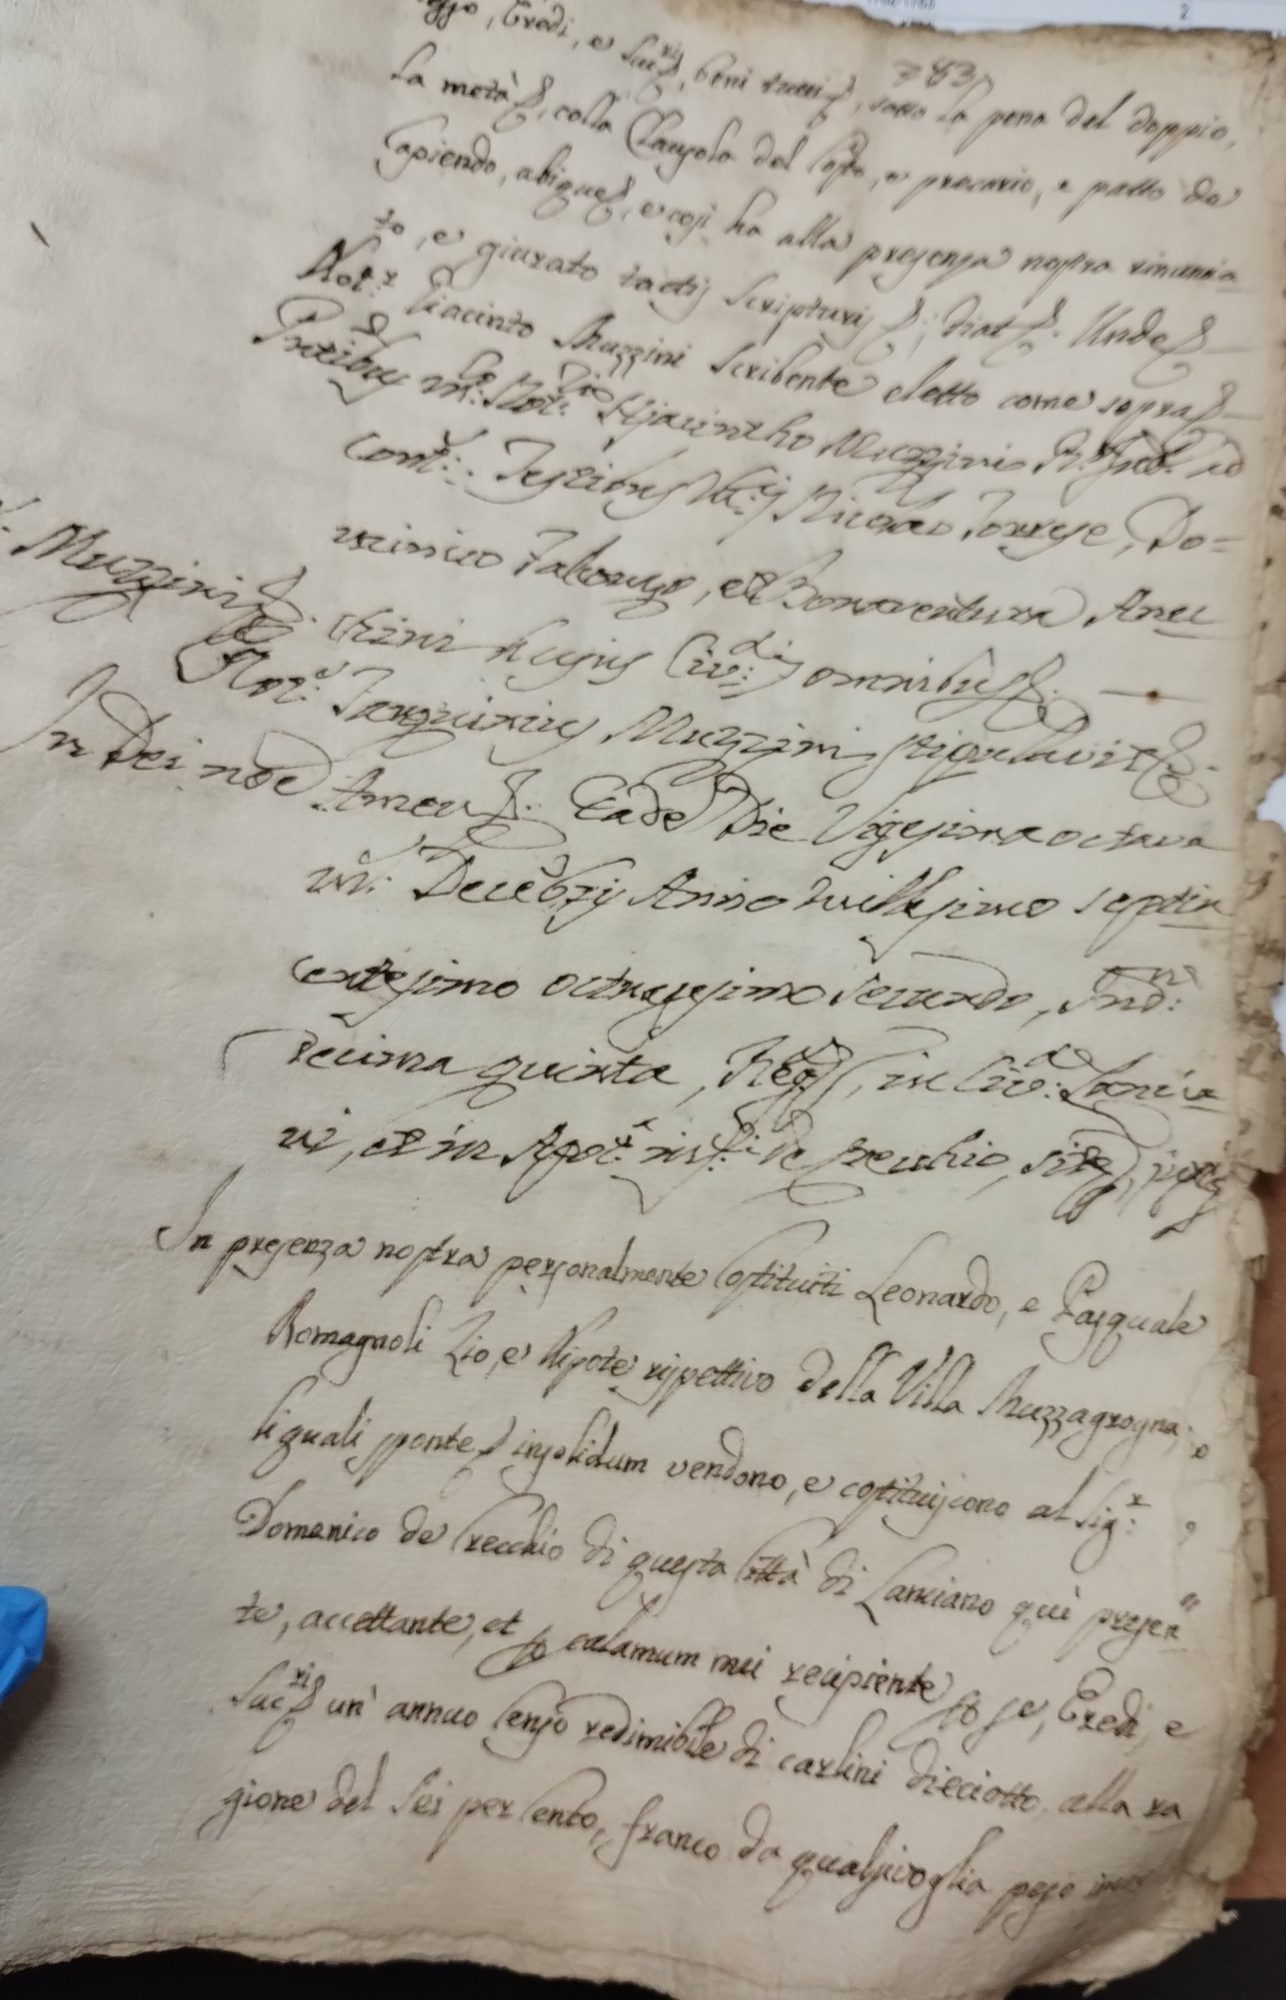 Eredi, e Suc.ri, beni tutti, sotto la pena del doppio,
la metà, colla Clausola del Costo, e precario, e patto de
Capiendo, absque, e così ha alla presenza nostra rinuncia
to, e giurato tactis scripturis; Unde
Not.r Giacinto Muzzini scribente eletto come sopra
Not. Hyacintho Muzzini ad
cont.: Testibus Nicolao Torrese, Do=
minico Falcongo, et Bonaventura Anec
chini hujus Civ.: omnibus
Muzzini
Not.: Tarquinius Muzzini stipulavit
In Dei noe Amen. Eadē Die Vigesima octava
m.: Decēbris Anno millesimo septin
centesimo octuagesimo secundo, Ind.:
decima quinta, Reg., in Civ.: Lancia
ni, et in Apot.: de Crecchio, sita, juxta
In presenza nostra personalmente Costituiti Leonardo, e Pasquale
Romagnoli Zio, e Nipote rispettivo della Villa Muzzagrogna,
li quali sponte insolidum vendono, e costituiscono al Sig.r
Domenico de Crecchio di questa Città di Lanciano quì presen
te, accettante, et p calamum mei recipiente p se, Eredi, e
Suc.ri un' annuo Censo redimibile di carlini dieciotto, alla ra
gione del sei per Cento, franco da qualsivoglia peso